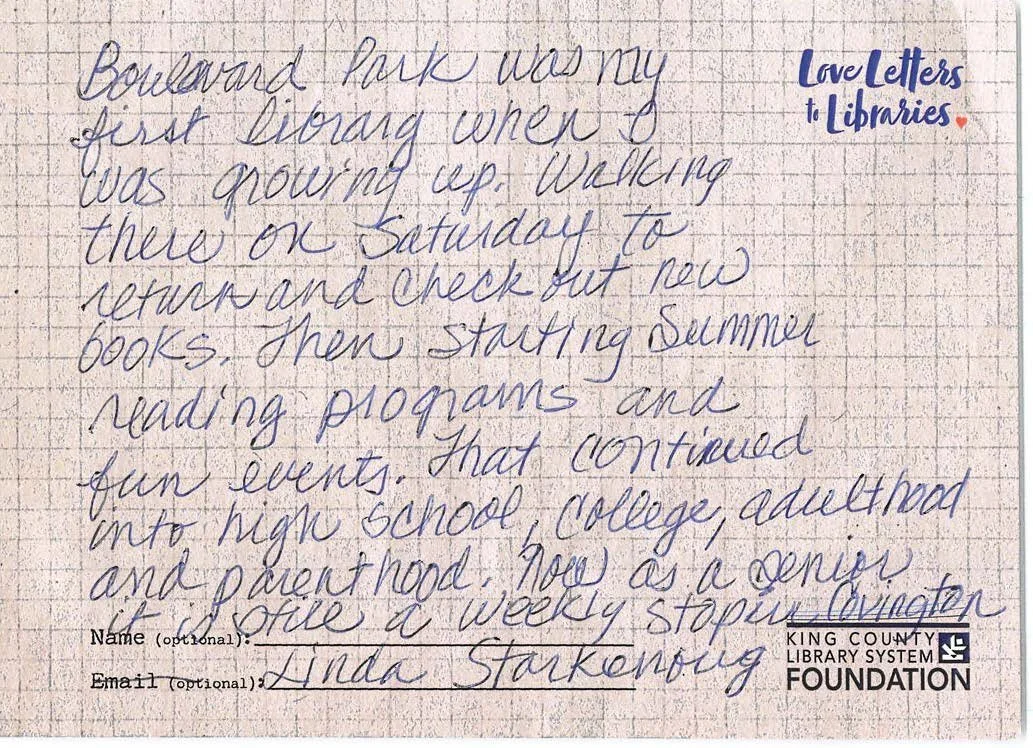 Boulevard Park was my
Love Letters
to Libraries
first library when I
was growing up. Walking
there on Saturday to
return and check out new
books. Then starting Summer
reading programs and
fun events. That continued
into high school, college, adulthood
and parenthood. Now as a senior
it is still a weekly stop in Covington
Name (optional):
Linda
Email (optional):
KING COUNTY
LIBRARY SYSTEM
FOUNDATION